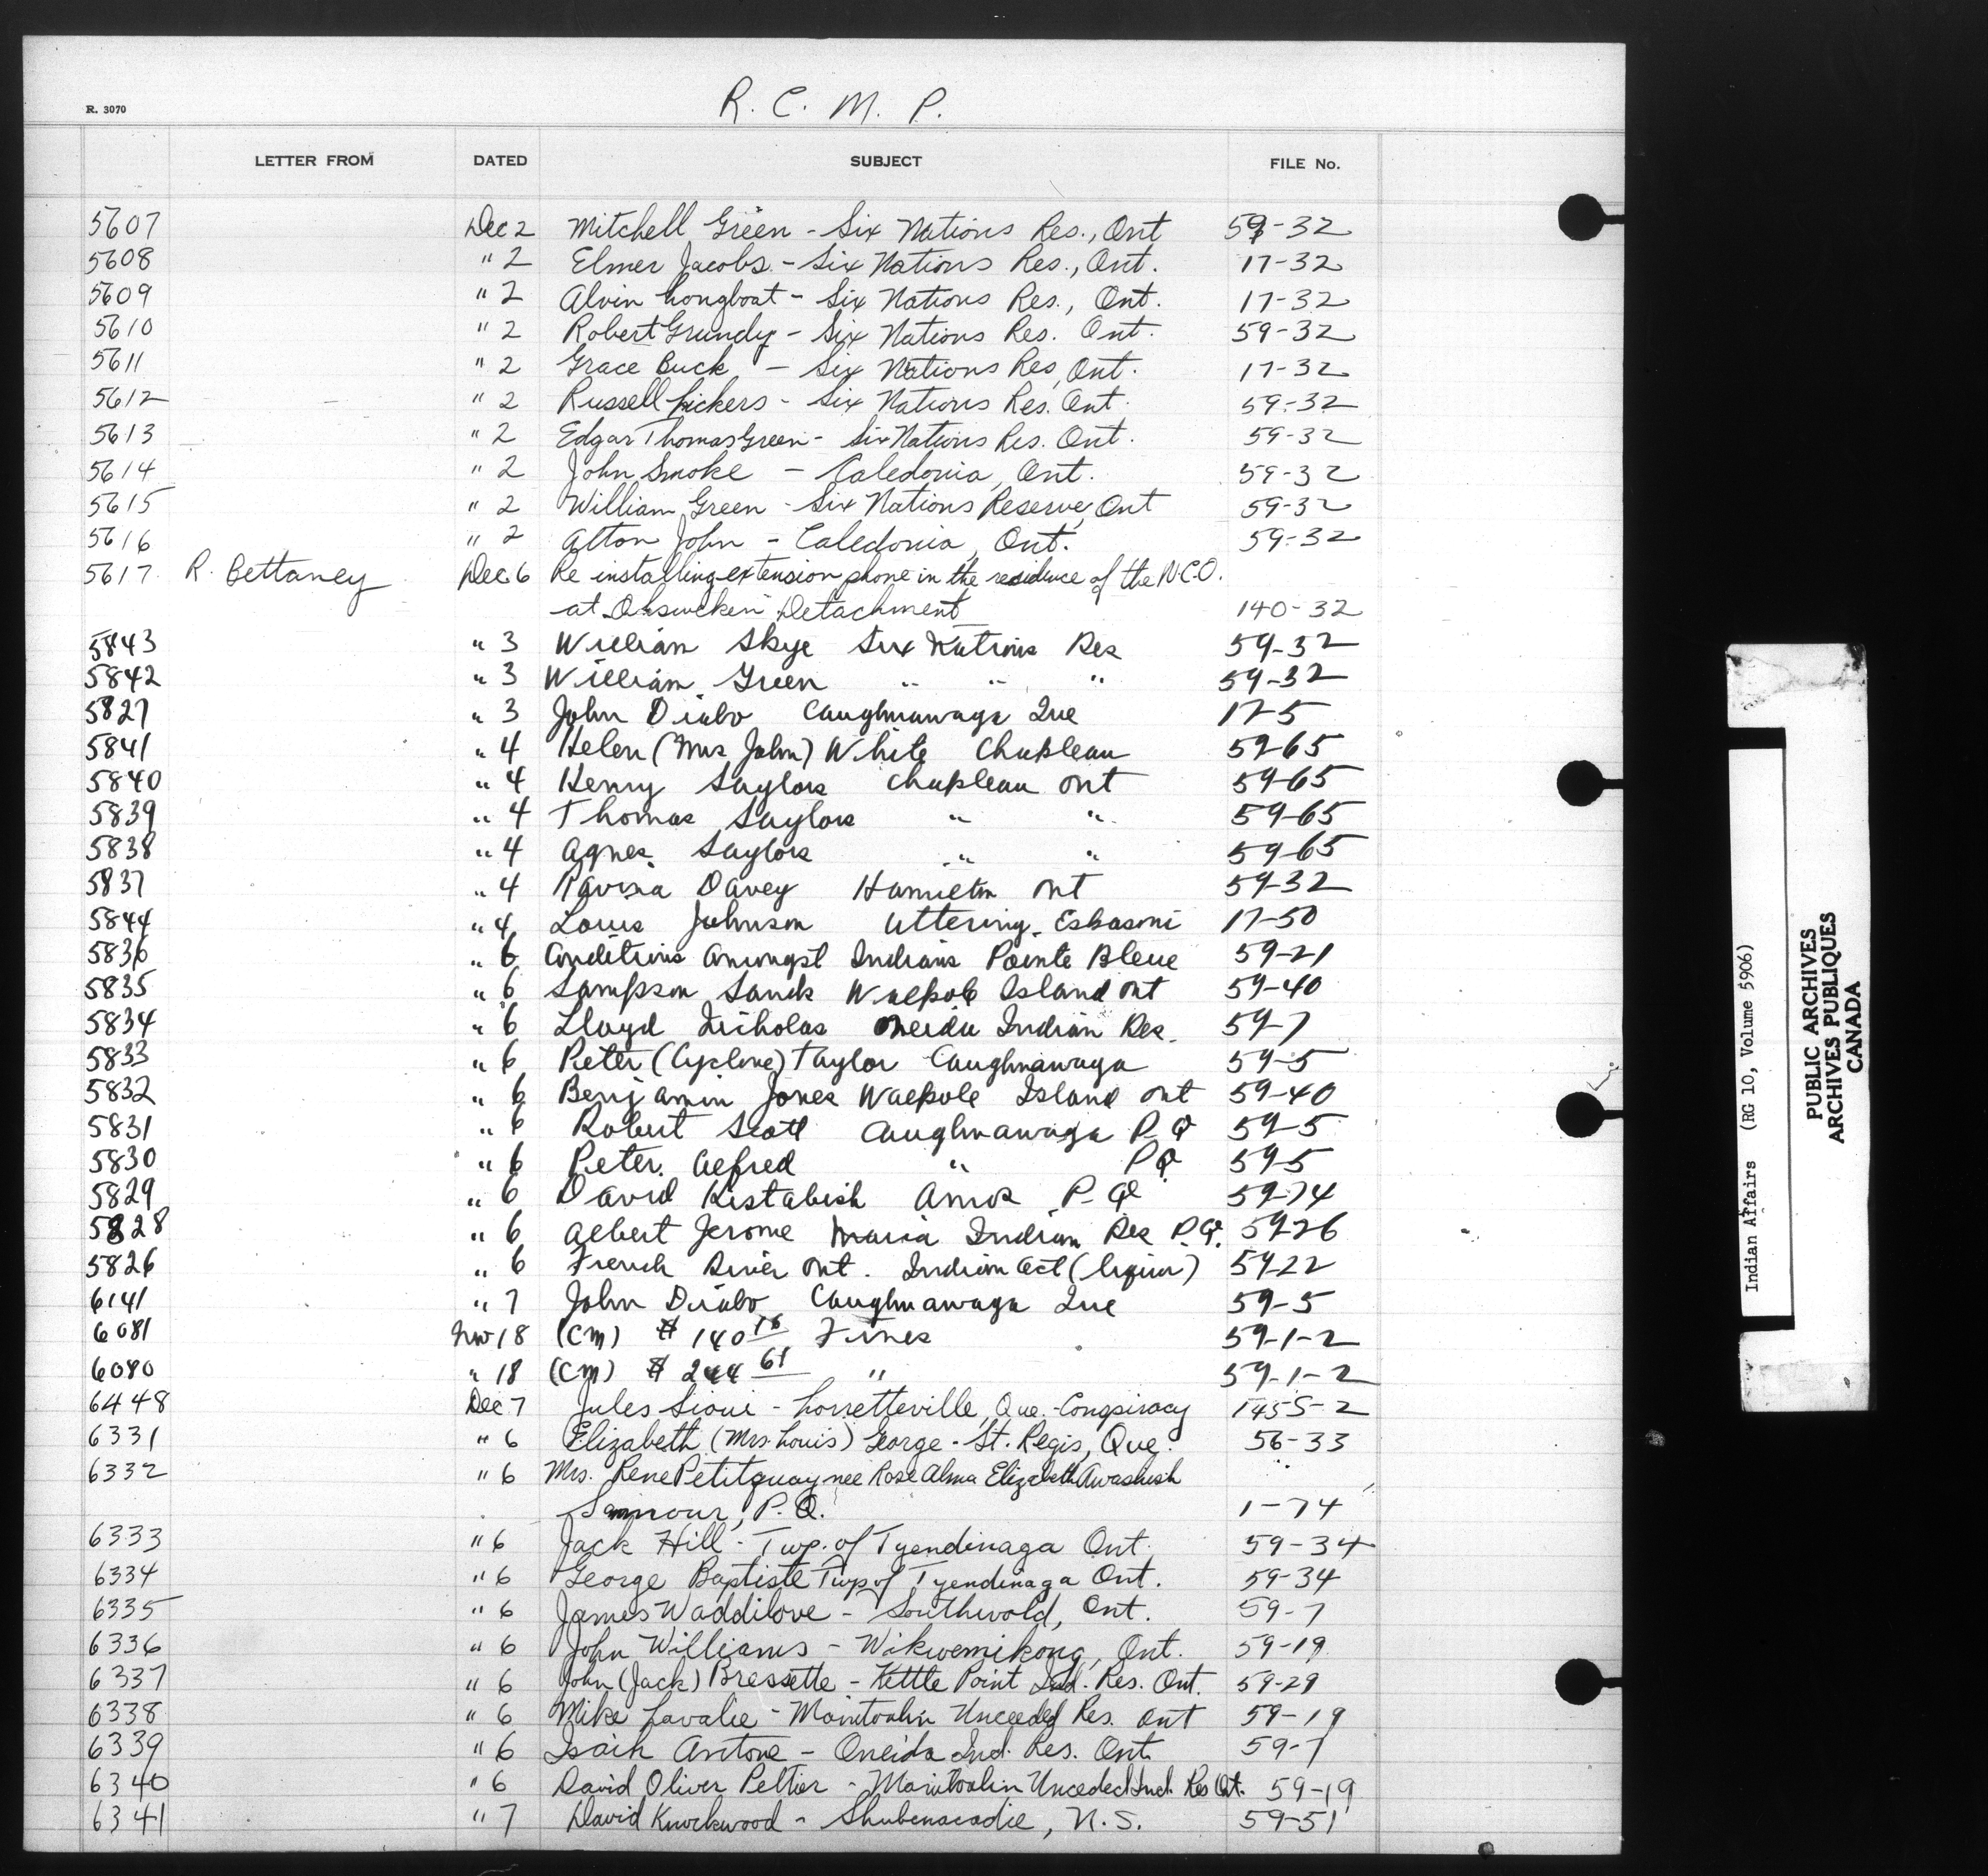 R. 3070
R. C. M. P.
LETTER FROM DATED SUBJECT FILE No.
5607 Dec 2 Mitchell Green - Six Nations Res., Ont 59-32
5608 " 2 Elmer Jacobs - Six Nations Res., Ont. 17-32
5609 " 2 Alvin Longboat - Six Nations Res., Ont. 17-32
5610 " 2 Robert Grundy - Six Nations Res. Ont. 59-32
5611 " 2 Grace Buck, - Six Nations Res, Ont. 17-32
5612 " 2 Russell Lickers - Six Nations Res. Ont. 59-32
5613 " 2 Edgar Thomas Green - Six Nations Res. Ont. 59-32
5614 " 2 John Smoke - Caledonia, Ont. 59-32
5615 " 2 William Green - Six Nations Reserve, Ont 59-32
5616 " 2 Alton John - Caledonia, Ont. 59-32
5617 R. Bettaney Dec 6 Re installing extension phone in the residence of the N.C.O.
at Ohsweken Detachment 140-32
5843 " 3 William Skye Six Nations Res 59-32
5842 " 3 William Green " " " 59-32
5827 " 3 John Diabo Caughnawaga Que 17-5
5841 " 4 Helen (Mrs John) White Chapleau 59-65
5840 " 4 Henry Saylors Chapleau Ont 59-65
5839 " 4 Thomas Saylors " " 59-65
5838 " 4 Agnes Saylors " " 59-65
5837 " 4 Davey Hamilton Ont 59-32
5844 " 4 Louis Johnson Uttering - Eskasoni 17-50
5836 " 6 Conditions Amongst Indians Pointe Bleue 59-21
5835 " 6 Sampson Sands Walpole Island Ont 59-40
5834 " 6 Lloyd Nicholas Oneida Indian Res. 59-7
5833 " 6 Peter (Cyclone) Taylor Caughnawaga 59-5
5832 " 6 Benjamin Jones Walpole Island Ont 59-40
5831 " 6 Robert Scott Caughnawaga P.Q 59-5
5830 " 6 Peter Alfred " P Q 59-5
5829 " 6 David Kistabish Amos P.Q 59-74
5828 " 6 Albert Jerome Maria Indian Res P.Q. 59-26
5826 " 6 French River Ont. Indian Act (liquor) 59-22
6141 " 7 John Diabo Caughnawaga Que 59-5
6081 Nov 18 (CM) $ 140 76 Fines 59-1-2
6080 " 18 (CM) $ 244 61 " 59-1-2
6448 Dec 7 Jules Sioui - Lorretteville, Que. - Conspiracy 1455-2
6331 " 6 Elizabeth (Mrs. Louis) George - St. Regis, Que. 56-33
6332 " 6 Mrs. Rene Petitquay nee Rose Alma Elizabeth Awashish
Sanmour, P.Q. 1-74
6333 " 6 Jack Hill - Twp. of Tyendinaga Ont. 59-34
6334 " 6 George Baptiste Twp of Tyendinaga Ont. 59-34
6335 " 6 James Waddilove - Southwold, Ont. 59-7
6336 " 6 John Williams - Wikwemikong, Ont. 59-19
6337 " 6 John (Jack) Bressette - Kettle Point Ind. Res. Ont. 59-29
6338 " 6 Mike Lavalie - Manitoulin Unceeded Res. Ont 59-19
6339 " 6 Isaih Antone - Oneida Ind. Res. Ont. 59-7
6340 " 6 David Oliver Peltier - Manitoulin Unceded Ind. Res Ont. 59-19
6341 " 7 David Knockwood - Shubenacadie, N.S. 59-51
Indian Affairs (RG 10, Volume 5906)
PUBLIC ARCHIVES
ARCHIVES PUBLIQUES
CANADA